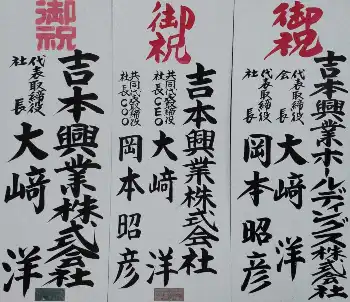 御祝
吉本興業株式会社
代表取締役
社長
大﨑洋
御祝
吉本興業株式会社
共同代表取締役
社長CEO
大﨑洋
共同代表取締役
社長COO
岡本昭彦
御祝
吉本興業ホールディングス株式会社
代表取締役
会長
大﨑洋
代表取締役
社長
岡本昭彦